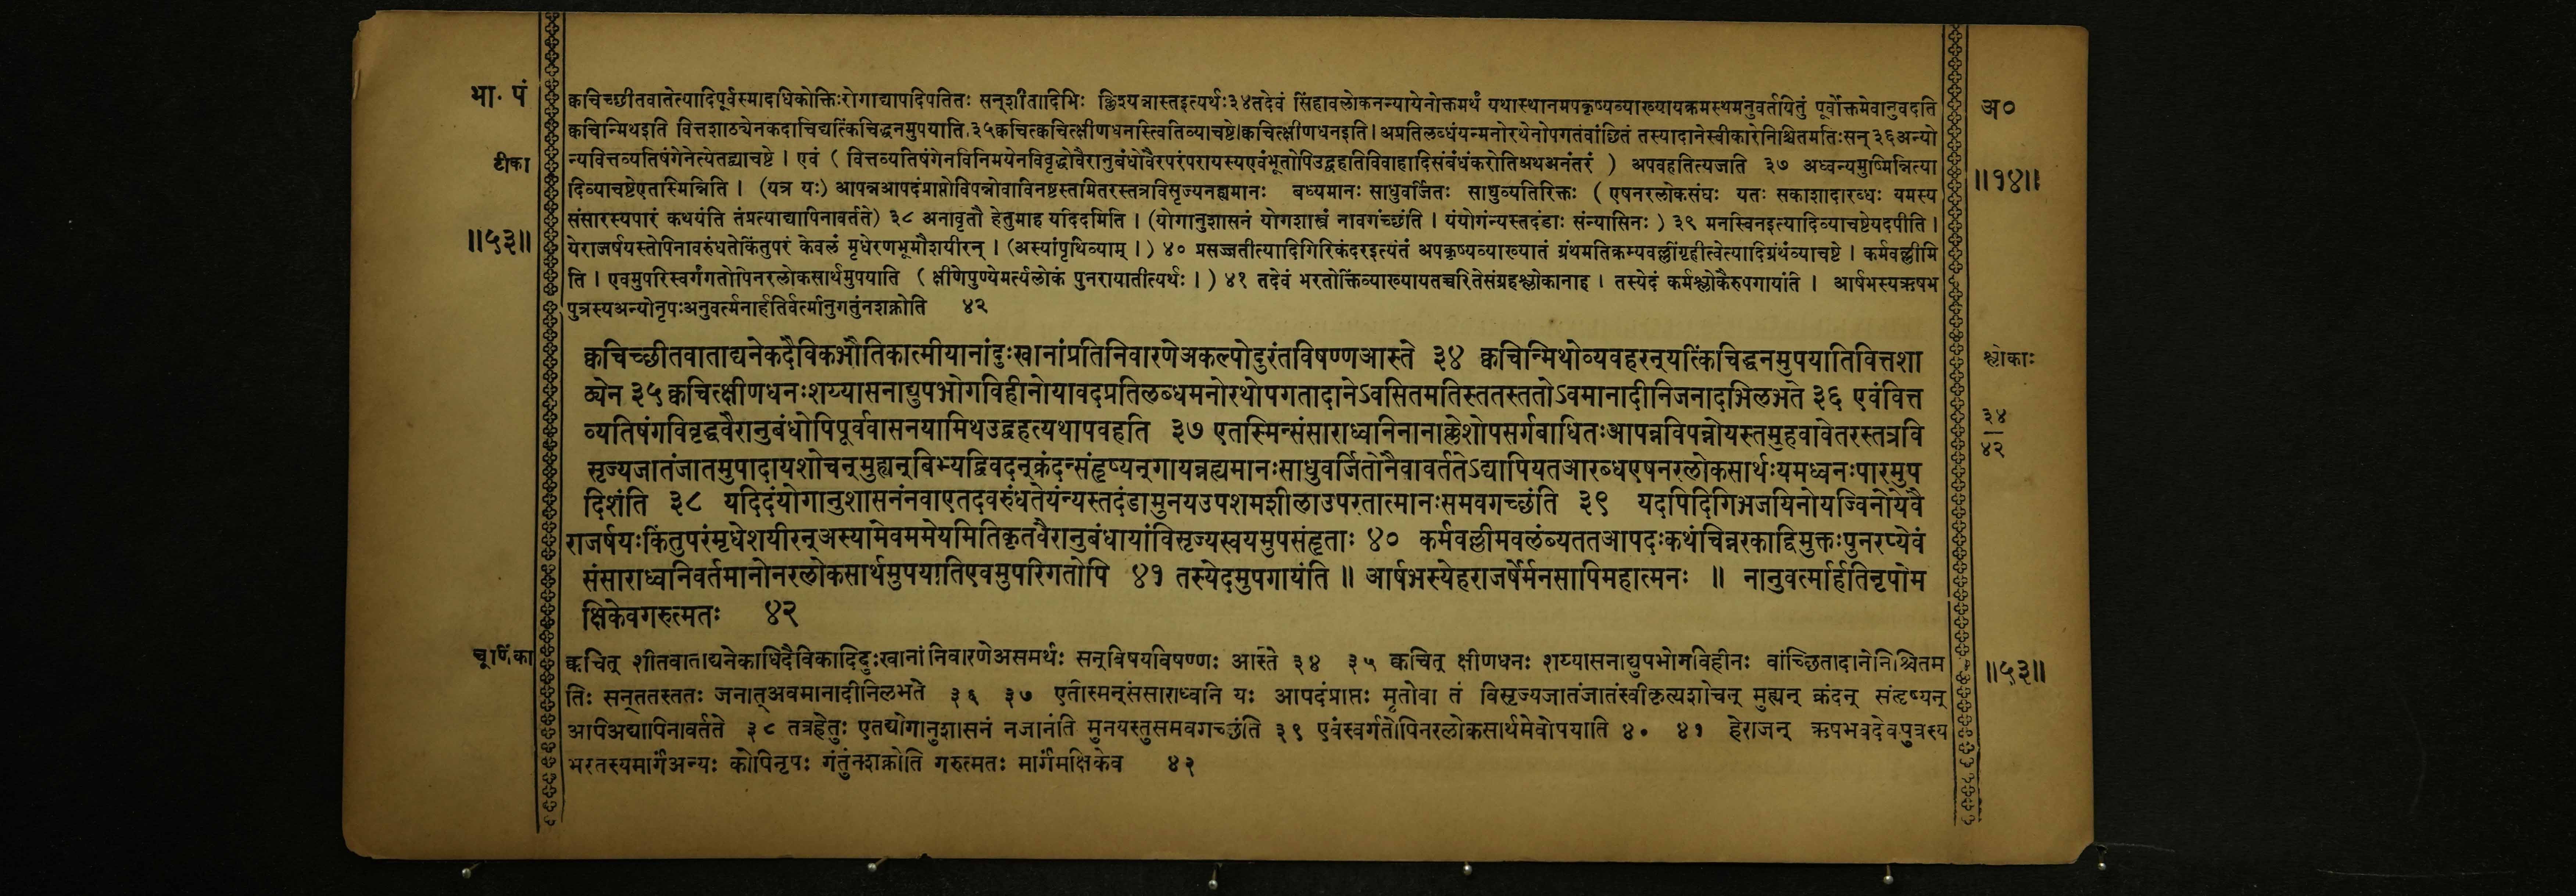 भा. पं
अ०
टीका
॥१४॥
॥५३॥
क्वचिच्छीतवातेत्यादिपूर्वस्मादधिकोक्तिःरोगाद्यापदिपतितः सन्‌शीतादिभिः क्लिश्यन्नास्तइत्यर्थः३४तदेवं सिंहावलोकनन्यायेनोक्तमर्थं यथास्थानमपकृष्यव्याख्यायक्रमस्थमनुवर्तयितुं पूर्वोक्तमेवानुवदति
क्वचिन्मिथइति वित्तशाठ्येनकदाचिद्यत्किंचिद्धनमुपयाति ३५क्वचित्क्वचित्क्षीणधनस्त्वितिव्याचष्टे।क्वचित्क्षीणधनइति। अप्रतिलब्धंयन्मनोरथेनोपगतंवांछितं तस्यादानेस्वीकारेनिश्चितमतिःसन् ३६अन्यो
न्यवित्तव्यतिषंगेनेत्येतद्व्याचष्टे । एवं ( वित्तव्यतिषंगेनविनिमयेनविवृद्धोवैरानुबंधोवैरपरंपरायस्यएवंभूतोपिउद्वहतिविवाहादिसंबंधंकरोतिअथअनंतरं ) अपवहतित्यजति ३७ अध्वन्यमुष्मिन्नित्या
दिव्याचष्टेएतास्मिन्निति । (यत्र यः) आपन्नआपदंप्राप्तोविपन्नोवाविनष्टस्तमितरस्तत्रविसृज्यनह्यमानः बध्यमानः साधुवर्जितः साधुव्यतिरिक्तः ( एषनरलोकसंघः यतः सकाशादारब्धः यमस्य
संसारस्यपारं कथयंति तंप्रत्याद्यापिनावर्तते) ३८ अनावृतौ हेतुमाह यदिदमिति । (योगानुशासनं योगशास्त्रं नावगच्छंति । यंयोगंन्यस्तदंडाः संन्यासिनः ) ३९ मनस्विनइत्यादिव्याचष्टेयदपीति ।
येराजर्षयस्तोपिनावरुंधतोकिंतुपरं केवलं मृधेरणभूमौशयीरन् । (अस्यांपृथिव्याम् ।) ४० प्रसज्जतीत्यादिगिरिकंदरइत्यंतं अपकृष्यव्याख्यातं ग्रंथमतिक्रम्यवल्लींगृहीत्वेत्यादिग्रंथंव्याचष्टे । कर्मवल्लीमि
ति । एवमुपरिस्वर्गंगतोपिनरलोकसार्थमुपयाति ( क्षीणेपुण्येमर्त्यलोकं पुनरायातीत्यर्थः । ) ४१ तदेवं भरतोक्तिंव्याख्यायतच्चरितेसंग्रहश्लोकानाह । तस्येदं कर्मश्लोकैरुपगायांति । आर्षभस्यऋषभ
पुत्रस्यअन्योनृपःअनुवर्त्मनार्हतिर्वर्त्मानुगतुंनशक्नोति ४२
क्वचिच्छीतवाताद्यनेकदैविकभौतिकात्मीयानांदुःखानांप्रतिनिवारणेअकल्पोदुरंतविषण्णआस्ते ३४ क्वचिन्मिथोव्यवहरन्‌यत्किंचिद्धनमुपयातिवित्तशा
ठ्येन ३५ क्वचित्क्षीणधनःशय्यासनाद्युपभोगविहीनोयावदप्रतिलब्धमनोरथोपगतादानेऽवसितमतिस्ततस्ततोऽवमानादीनिजनादभिलभते ३६ एवंवित्त
व्यतिषंगविवृद्धवैरानुबंधोपिपूर्ववासनयामिथउद्वहत्यथापवहति ३७ एतस्मिन्संसाराध्वनिनानाक्लेशोपसर्गबाधितःआपन्नविपन्नोयस्तमुहवावेतरस्तत्रवि
सृज्यजातंजातमुपादायशोचन्‌मुह्यन्‌बिभ्यद्विवदन्‌क्रंदन्संहृष्यन्‌गायन्नह्यमानःसाधुवर्जितोनैवावर्ततेऽद्यापियतआरब्धएषनरलोकसार्थःयमध्वनःपारमुप
दिशंति ३८ यदिदंयोगानुशासनंनवाएतदवरुंधतेयंन्यस्तदंडामुनयउपशमशीलाउपरतात्मानःसमवगच्छंति ३९ यदपिदिगिभजयिनोयज्विनोयेवै
राजर्षयःकिंतुपरंमृधेशयीरन्‌अस्यामेवममेयमितिकृतवैरानुबंधायांविसृज्यस्वयमुपसंहृताः ४० कर्मवल्लीमवलंब्यततआपदःकथंचिन्नरकाद्विमुक्तःपुनरप्येवं
संसाराध्वनिवर्तमानोनरलोकसार्थमुपयातिएवमुपरिगतोपि ४१ तस्येदमुपगायंति ॥ आर्षभस्येहराजर्षेर्मनसापिमहात्मनः ॥ नानुवर्त्मार्हतिनृपोम
क्षिकेवगरुत्मतः ४२
श्लोकाः
३४
४२
चूर्णिका
क्वचित् शीतवाताद्यनेकाधिदैविकादिदुःखानां निवारणेअसमर्थः सन्‌विषयविषण्णः आस्ते ३४ ३५ क्वचित् क्षीणधनः शय्यासनाद्युपभोगविहीनः वांच्छितादानेनिश्चितम
तिः सन्‌ततस्ततः जनात्‌अवमानादीनिलभते ३६ ३७ एतस्मिन्‌संसाराध्वनि यः आपदंप्राप्तः मृतोवा तं विसृज्यजातंजातंस्वीकृत्यशोचन् मुह्यन् क्रंदन् संहृष्यन्
आपिअद्यापिनावर्तते ३८ तत्रहेतुः एतद्योगानुशासनं नजानंति मुनयस्तुसमवगच्छंति ३९ एवंस्वर्गतोपिनरलोकसार्थमेवोपयाति ४० ४१ हेराजन् ऋषभवदेवपुत्रस्य
भरतस्यमार्गंअन्यः कोपिनृपः गंतुंनशक्नोति गरुत्मतः मार्गंमक्षिकेव ४२
॥५३॥